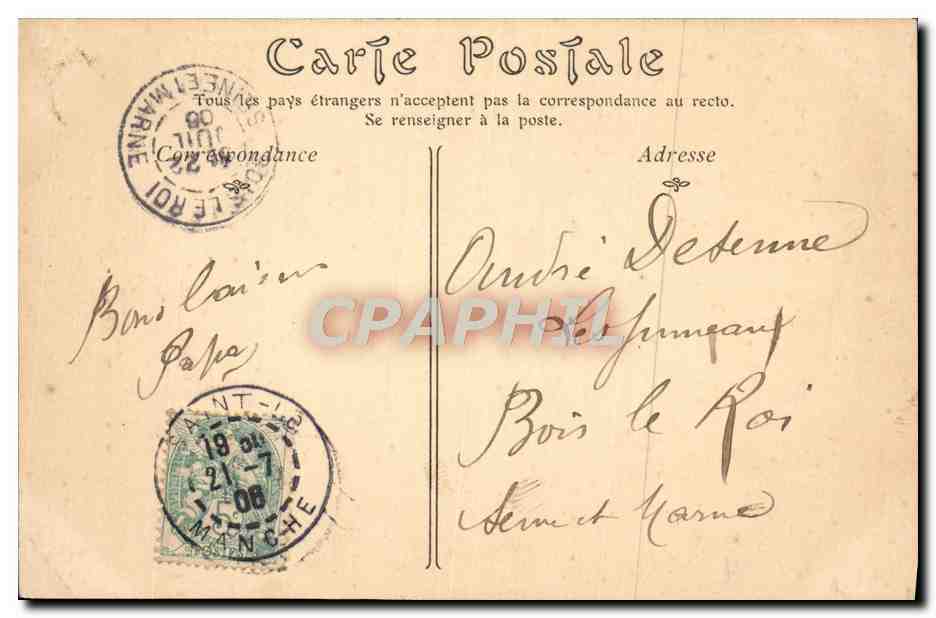 Carte Postale
Tous les pays étrangers n'acceptent pas la correspondance au recto.
Se renseigner à la poste.
BOIS LE ROI
SEINE ET MARNE
22
JUIL
06
Correspondance
Adresse
Bons baisers
Papa
André Desenne
Les Jumeaux
Bois le Roi
Seine et Marne
CPAPHIL
SAINT-LO
19
21-7
06
MANCHE
5c